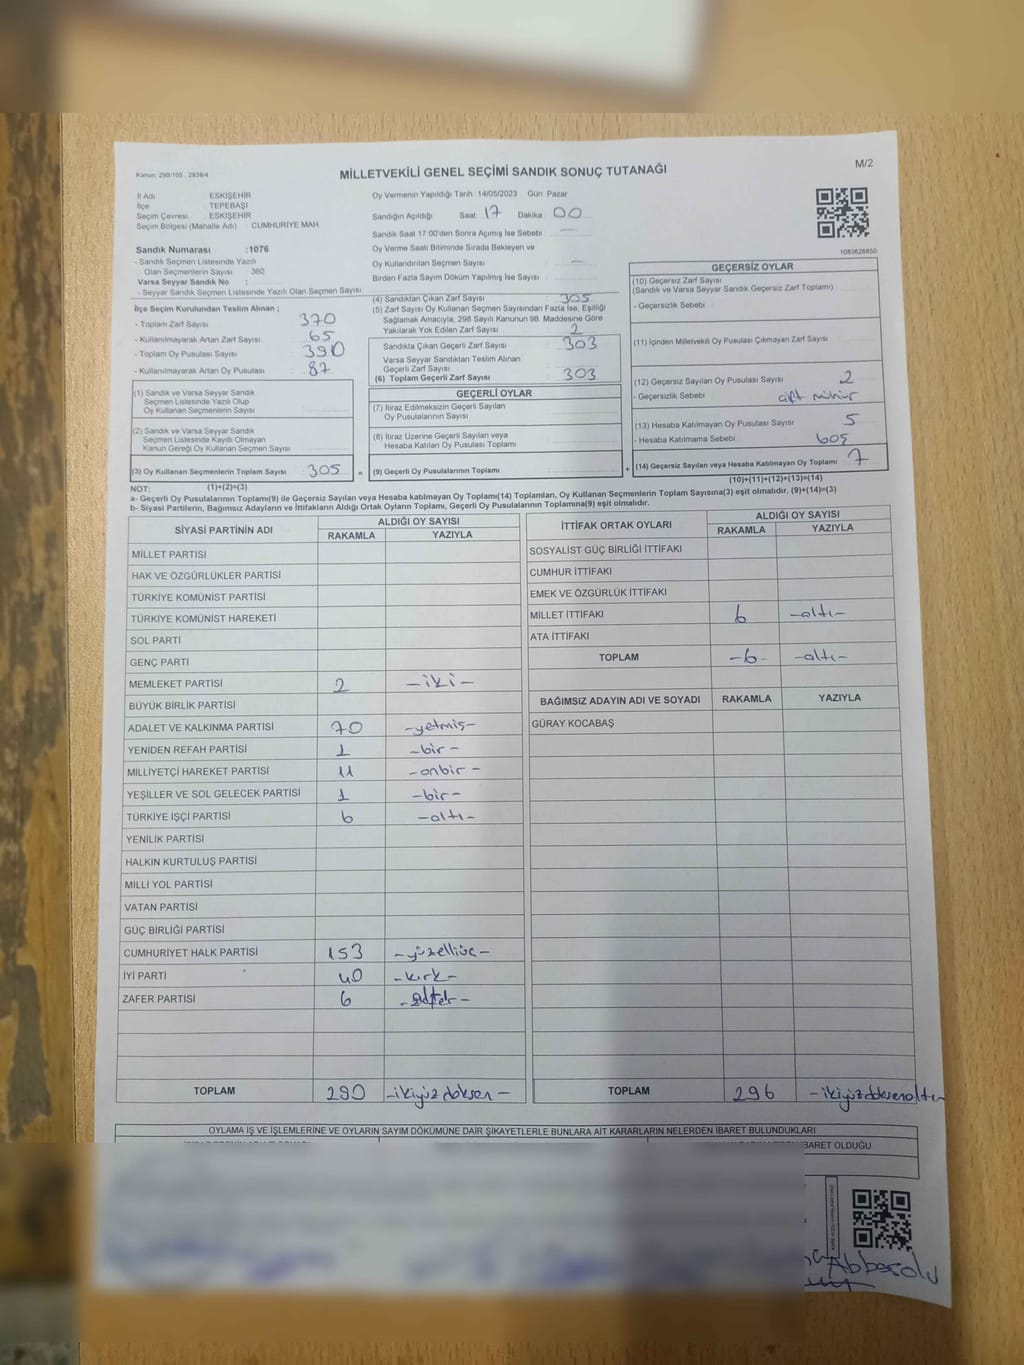 Kanun; 298/105 . 2839/4
MİLLETVEKİLİ GENEL SEÇİMİ SANDIK SONUÇ TUTANAĞI
M/2
İl Adı ESKİŞEHİR
İlçe TEPEBAŞI
Seçim Çevresi : ESKİŞEHİR
Seçim Bölgesi (Mahalle Adı) CUMHURİYE MAH.
Sandık Numarası :1076
- Sandık Seçmen Listesinde Yazılı
Olan Seçmenlerin Sayısı 360
Varsa Seyyar Sandık No :
- Seyyar Sandık Seçmen Listesinde Yazılı Olan Seçmen Sayısı
Oy Vermenin Yapıldığı Tarih 14/05/2023 Gün: Pazar
Sandığın Açıldığı Saat 17 Dakika 00
Sandık Saat 17:00'den Sonra Açımış İse Sebebi
Oy Verme Saati Bitiminde Sırada Bekleyen ve
Oy Kullandırılan Seçmen Sayısı —
Birden Fazla Sayım Döküm Yapılmış İse Sayısı
1083626850
İlçe Seçim Kurulundan Teslim Alınan ;
- Toplam Zarf Sayısı 370
- Kullanılmayarak Artan Zarf Sayısı 65
- Toplam Oy Pusulası Sayısı 390
- Kullanılmayarak Artan Oy Pusulası 87
(1) Sandık ve Varsa Seyyar Sandık
Seçmen Listesinde Yazılı Olup
Oy Kullanan Seçmenlerin Sayısı
(2) Sandık ve Varsa Seyyar Sandık
Seçmen Listesinde Kayıtlı Olmayan
Kanun Gereği Oy Kullanan Seçmen Sayısı
(3) Oy Kullanan Seçmenlerin Toplam Sayısı 305 =
(1)+(2)=(3)
(4) Sandıktan Çıkan Zarf Sayısı 305
(5) Zarf Sayısı Oy Kullanan Seçmen Sayısından Fazla İse, Eşitliği
Sağlamak Amacıyla, 298 Sayılı Kanunun 98. Maddesine Göre
Yakılarak Yok Edilen Zarf Sayısı 2
Sandıkta Çıkan Geçerli Zarf Sayısı 303
Varsa Seyyar Sandıktan Teslim Alınan
Geçerli Zarf Sayısı
(6) Toplam Geçerli Zarf Sayısı 303
GEÇERLİ OYLAR
(7) İtiraz Edilmeksizin Geçerli Sayılan
Oy Pusulalarının Sayısı
(8) İtiraz Üzerine Geçerli Sayılan veya
Hesaba Katılan Oy Pusulası Toplamı
(9) Geçerli Oy Pusulalarının Toplamı +
GEÇERSİZ OYLAR
(10) Geçersiz Zarf Sayısı
(Sandık ve Varsa Seyyar Sandık Geçersiz Zarf Toplamı)
- Geçersizlik Sebebi
(11) İçinden Milletvekili Oy Pusulası Çıkmayan Zarf Sayısı
(12) Geçersiz Sayılan Oy Pusulası Sayısı 2
- Geçersizlik Sebebi çift mühür
(13) Hesaba Katılmayan Oy Pusulası Sayısı 5
- Hesaba Katılmama Sebebi boş
(14) Geçersiz Sayılan veya Hesaba Katılmayan Oy Toplamı 7
(10)+(11)+(12)+(13)=(14)
NOT:
a- Geçerli Oy Pusulalarının Toplamı(9) ile Geçersiz Sayılan veya Hesaba katılmayan Oy Toplamı(14) Toplamları, Oy Kullanan Seçmenlerin Toplam Sayısına(3) eşit olmalıdır. (9)+(14)=(3)
b- Siyasi Partilerin, Bağımsız Adayların ve İttifakların Aldığı Ortak Oyların Toplamı, Geçerli Oy Pusulalarının Toplamına(9) eşit olmalıdır.
SİYASİ PARTİNİN ADI ALDIĞI OY SAYISI
RAKAMLA YAZIYLA
MİLLET PARTİSİ
HAK VE ÖZGÜRLÜKLER PARTİSİ
TÜRKİYE KOMÜNİST PARTİSİ
TÜRKİYE KOMÜNİST HAREKETİ
SOL PARTİ
GENÇ PARTİ
MEMLEKET PARTİSİ 2 -iki-
BÜYÜK BİRLİK PARTİSİ
ADALET VE KALKINMA PARTİSİ 70 -yetmiş-
YENİDEN REFAH PARTİSİ 1 -bir-
MİLLİYETÇİ HAREKET PARTİSİ 11 -onbir-
YEŞİLLER VE SOL GELECEK PARTİSİ 1 -bir-
TÜRKİYE İŞÇİ PARTİSİ 6 -altı-
YENİLİK PARTİSİ
HALKIN KURTULUŞ PARTİSİ
MİLLİ YOL PARTİSİ
VATAN PARTİSİ
GÜÇ BİRLİĞİ PARTİSİ
CUMHURİYET HALK PARTİSİ 153 -yüzelliüç-
İYİ PARTİ 40 -kırk-
ZAFER PARTİSİ 6
TOPLAM 290 -ikiyüzdoksan-
İTTİFAK ORTAK OYLARI ALDIĞI OY SAYISI
RAKAMLA YAZIYLA
SOSYALİST GÜÇ BİRLİĞİ İTTİFAKI
CUMHUR İTTİFAKI
EMEK VE ÖZGÜRLÜK İTTİFAKI
MİLLET İTTİFAKI 6 -altı-
ATA İTTİFAKI
TOPLAM -6- -altı-
BAĞIMSIZ ADAYIN ADI VE SOYADI RAKAMLA YAZIYLA
GÜRAY KOCABAŞ
TOPLAM 296 -ikiyüzdoksanaltı-
OYLAMA İŞ VE İŞLEMLERİNE VE OYLARIN SAYIM DÖKÜMÜNE DAİR ŞİKAYETLERLE BUNLARA AİT KARARLARIN NELERDEN İBARET BULUNDUKLARI
İBARET OLDUĞU